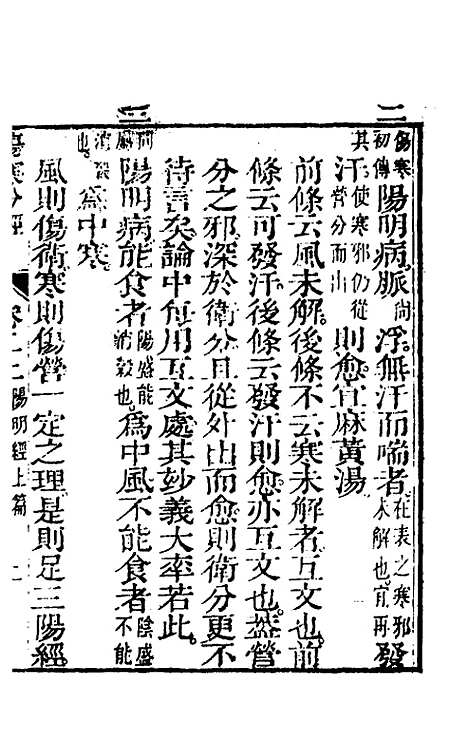 二
傷寒初傳陽明病脈尚浮無汗而喘者在表之寒邪未解也宜再發
其汗使寒邪仍從營分而出則愈宜麻黃湯
前條云風未解後條不云寒未解者互文也前
條云可發汗後條云發汗則愈亦互文也蓋營
分之邪深於衛分且從外出而愈則衛分更不
待言矣論中每用互文處其妙義大率若此
三
同前陽明病能食者陽盛能消穀也爲中風不能食者陰盛不能
消穀也爲中寒
風則傷衛寒則傷營一定之理是則足三陽經
傷寒分經 卷之二 陽明經上篇 二